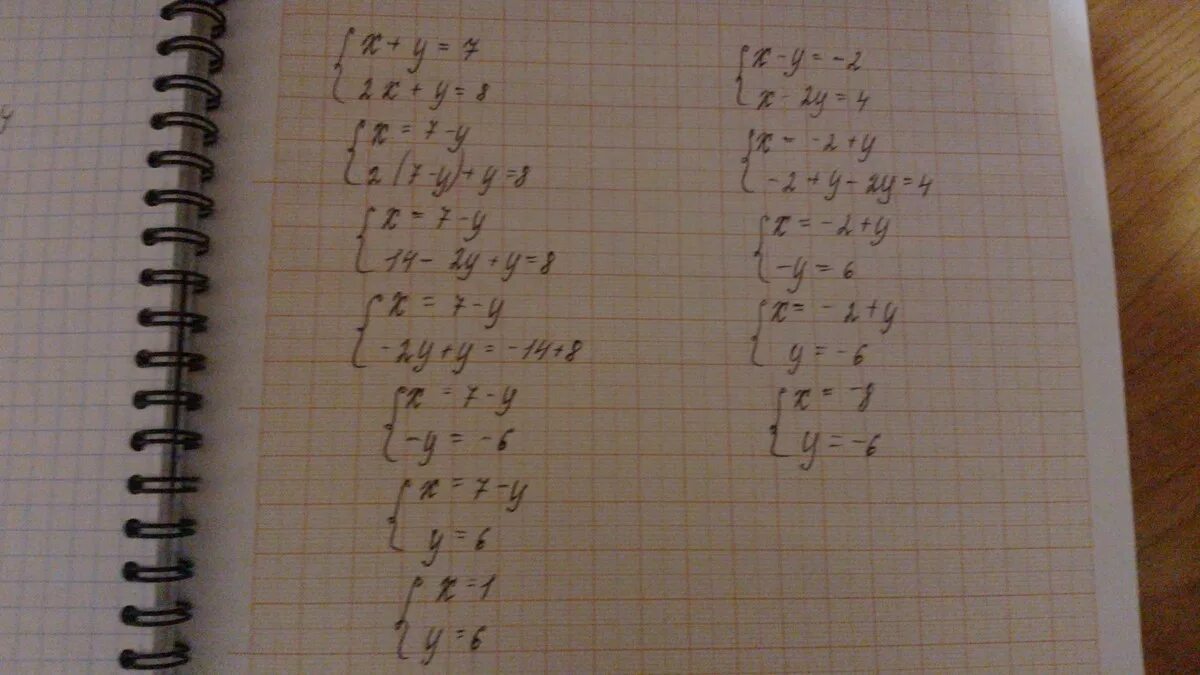 x + y = 7
2x + y = 8
x = 7 - y
2(7-y) + y = 8
x = 7 - y
14 - 2y + y = 8
x = 7 - y
-2y + y = -14 + 8
x = 7 - y
-y = -6
x = 7 - y
y = 6
x = 1
y = 6
x - y = -2
x - 2y = 4
x = -2 + y
-2 + y - 2y = 4
x = -2 + y
-y = 6
x = -2 + y
y = -6
x = -8
y = -6